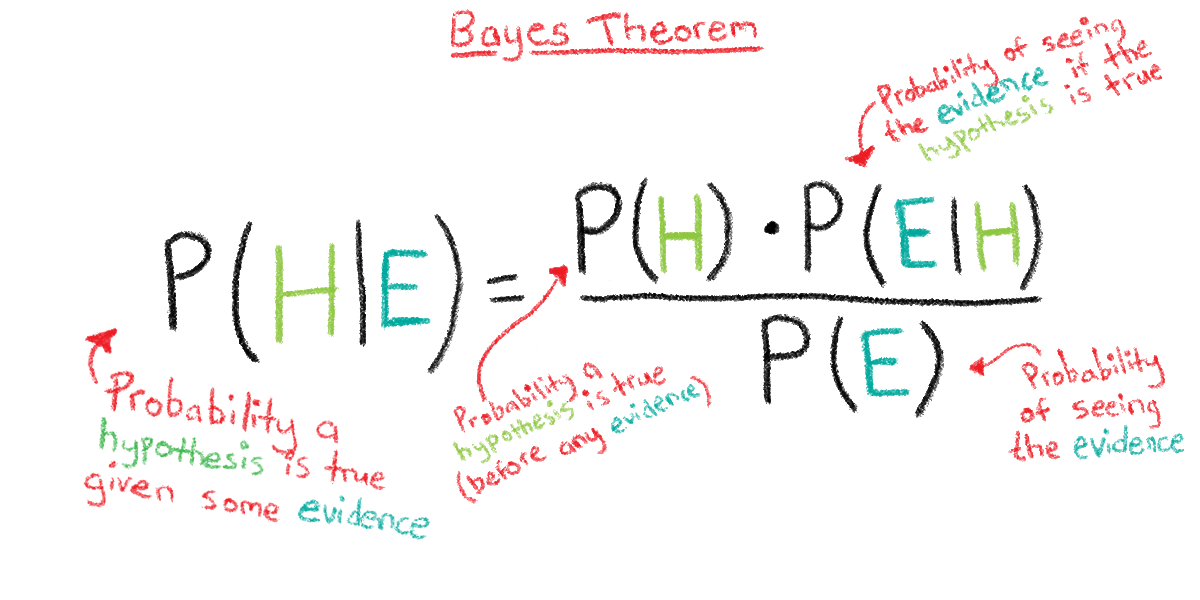 Bayes Theorem
Probability of seeing
the evidence if the
hypothesis is true
P(H|E) = P(H) · P(E|H)
P(E)
Probability a
hypothesis is true
given some evidence
Probability a
hypothesis is true
(before any evidence)
Probability
of seeing
the evidence